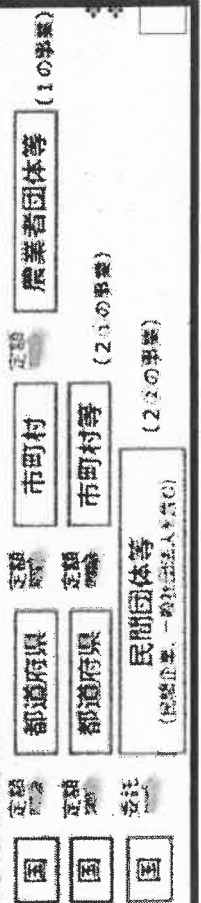 国 定額 都道府県 定額 市町村 定額 農業者団体等 (1の事業)
国 定額 都道府県 定額 市町村等 (2①の事業)
国 委託 民間団体等 (2②の事業)
(民間企業、一般社団法人を含む)